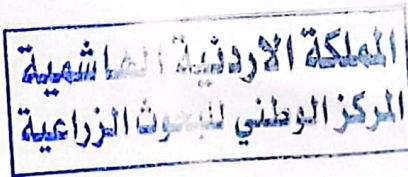 المملكة الاردنية الهاشمية
المركز الوطني للبحوث الزراعية